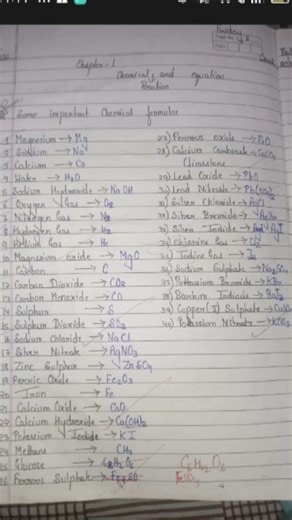 Chapter-1
Chemically and equation
Reaction
Some important Chemical formulas
1 Magnesium → Mg
2 Sodium → Na
3 Calcium → Ca
4 Water → H2O
5 Sodium Hydroxide → NaOH
6 Oxygen Gas → O2
7 Nitrogen Gas → N2
8 Hydrogen Gas → H2
9 Helium Gas → He
10 Magnesium oxide → MgO
11 Carbon → C
12 Carbon Dioxide → CO2
13 Carbon Monoxide → CO
14 Sulphur → S
15 Sulphur Dioxide → SO2
16 Sodium Chloride → NaCl
17 Silver Nitrate → AgNO3
18 Zinc Sulphate → ZnSO4
19 Ferric Oxide → Fe2O3
20 Iron → Fe
21 Calcium Oxide → CaO
22 Calcium Hydroxide → Ca(OH)2
23 Potassium Iodide → KI
24 Methane → CH4
25 Glucose →
26 Ferrous Sulphate →
27) Ferrous oxide → FeO
28) Calcium Carbonate → CaCO3
Limestone
29) Lead Oxide → PbO
30) Lead Nitrate → Pb(NO3)2
31) Silver Chloride → AgCl
32) Silver Bromide → AgBr
33) Silver Iodide → AgI
34) Chlorine Gas → Cl2
35) Iodine Gas → I2
36) Sodium Sulphate → Na2SO4
37) Potassium Bromide → KBr
38) Barium
39) Copper(II) Sulphate → CuSO4
40) Potassium Nitrate → KNO3
C6H12O6
FeSO4